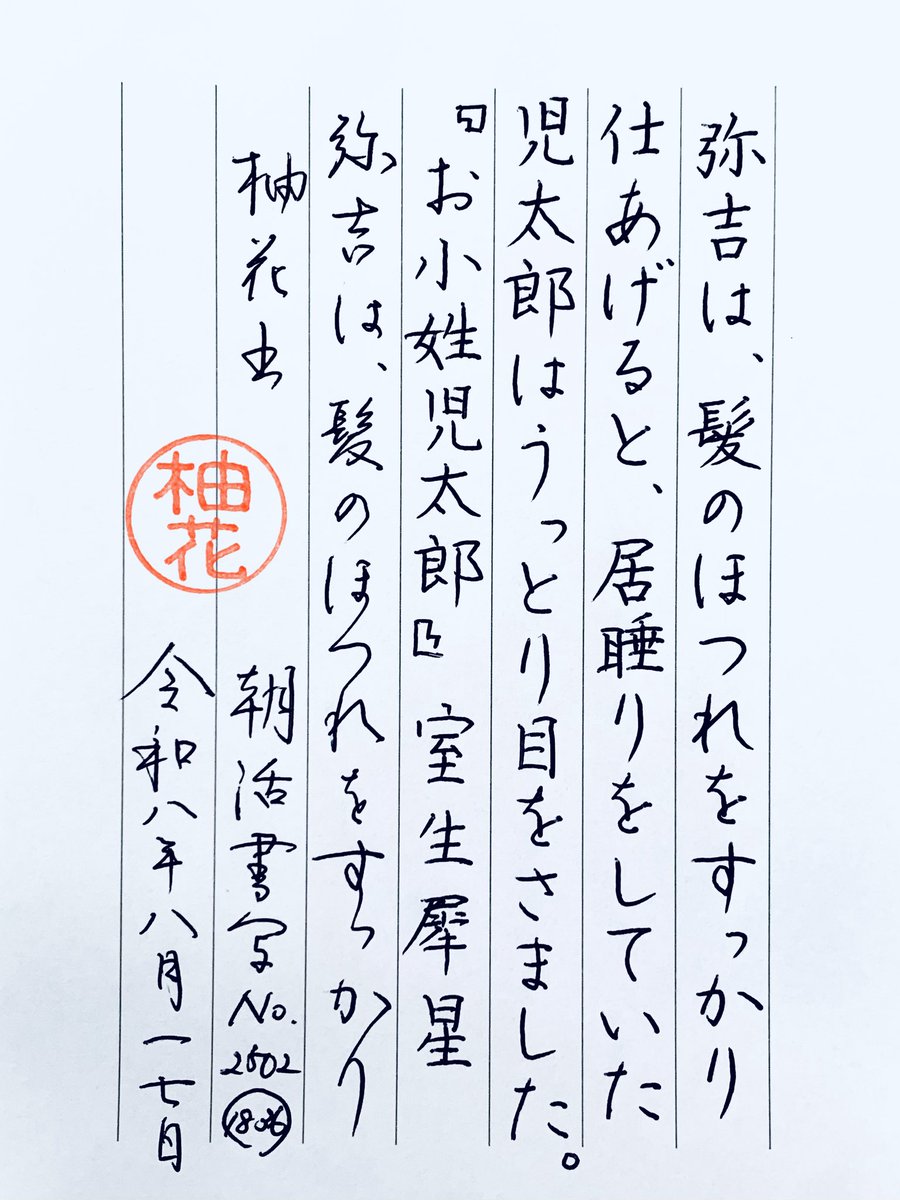 弥吉は、髪のほつれをすっかり
仕あげると、居睡りをしていた
児太郎はうっとり目をさました。
『お小姓児太郎』 室生犀星
弥吉は、髪のほつれをすっかり
柚花出 朝活書写No.2502
柚花
令和八年八月一七日